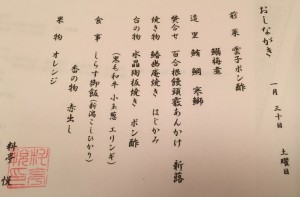 おしながき
一月 三十日 土曜日
前菜 雲子ポン酢
鰯梅煮
造里 鮪 鯛 寒鰤
焚合せ 百合根饅頭霰あんかけ 新蕗
焼き物 鰆幽庵焼き はじかみ
台の物 水晶陶板焼き ポン酢
(黒毛和牛 小玉葱 エリンギ)
食事 しらす御飯(新潟こしひかり)
香の物 赤出し
果物 オレンジ
料亭 悦